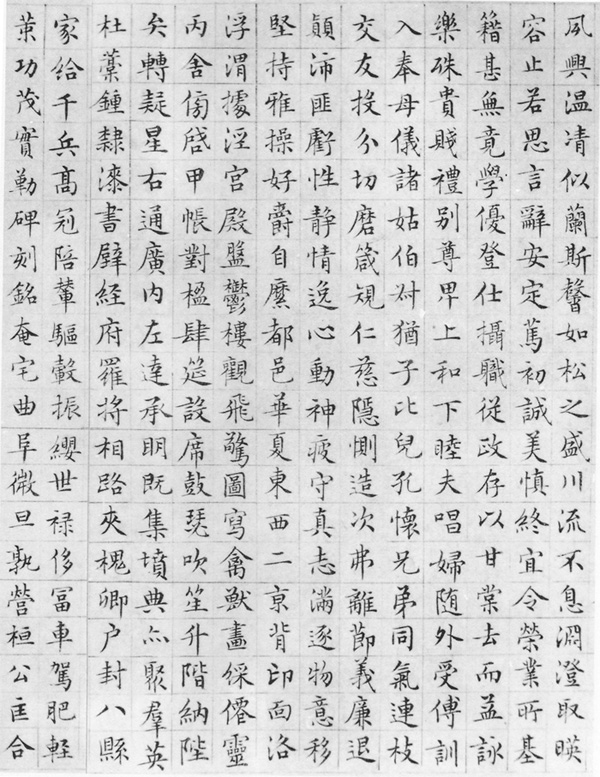 夙興温凊似蘭斯馨如松之盛川流不息淵澄取暎
容止若思言辭安定篤初誠美慎終宜令榮業所基
籍甚無竟學優登仕攝職從政存以甘棠去而益詠
樂殊貴賤禮別尊卑上和下睦夫唱婦随外受傅訓
入奉母儀諸姑伯叔猶子比兒孔懷兄弟同氣連枝
交友投分切磨箴規仁慈隱惻造次弗離節義廉退
顛沛匪虧性静情逸心動神疲守真志滿逐物意移
堅持雅操好爵自縻都邑華夏東西二京背邙面洛
浮渭據涇宮殿盤鬱樓觀飛驚圖寫禽獸畫綵僊靈
丙舍傍啓甲帳對楹肆筵設席鼓瑟吹笙升階納陛
弁轉疑星右通廣内左達承明既集墳典亦聚羣英
杜藁鍾隸漆書壁經府羅將相路夾槐卿户封八縣
家給千兵高冠陪輦驅轂振纓世禄侈冨車駕肥輕
策功茂實勒碑刻銘奄宅曲阜微旦孰營桓公匡合